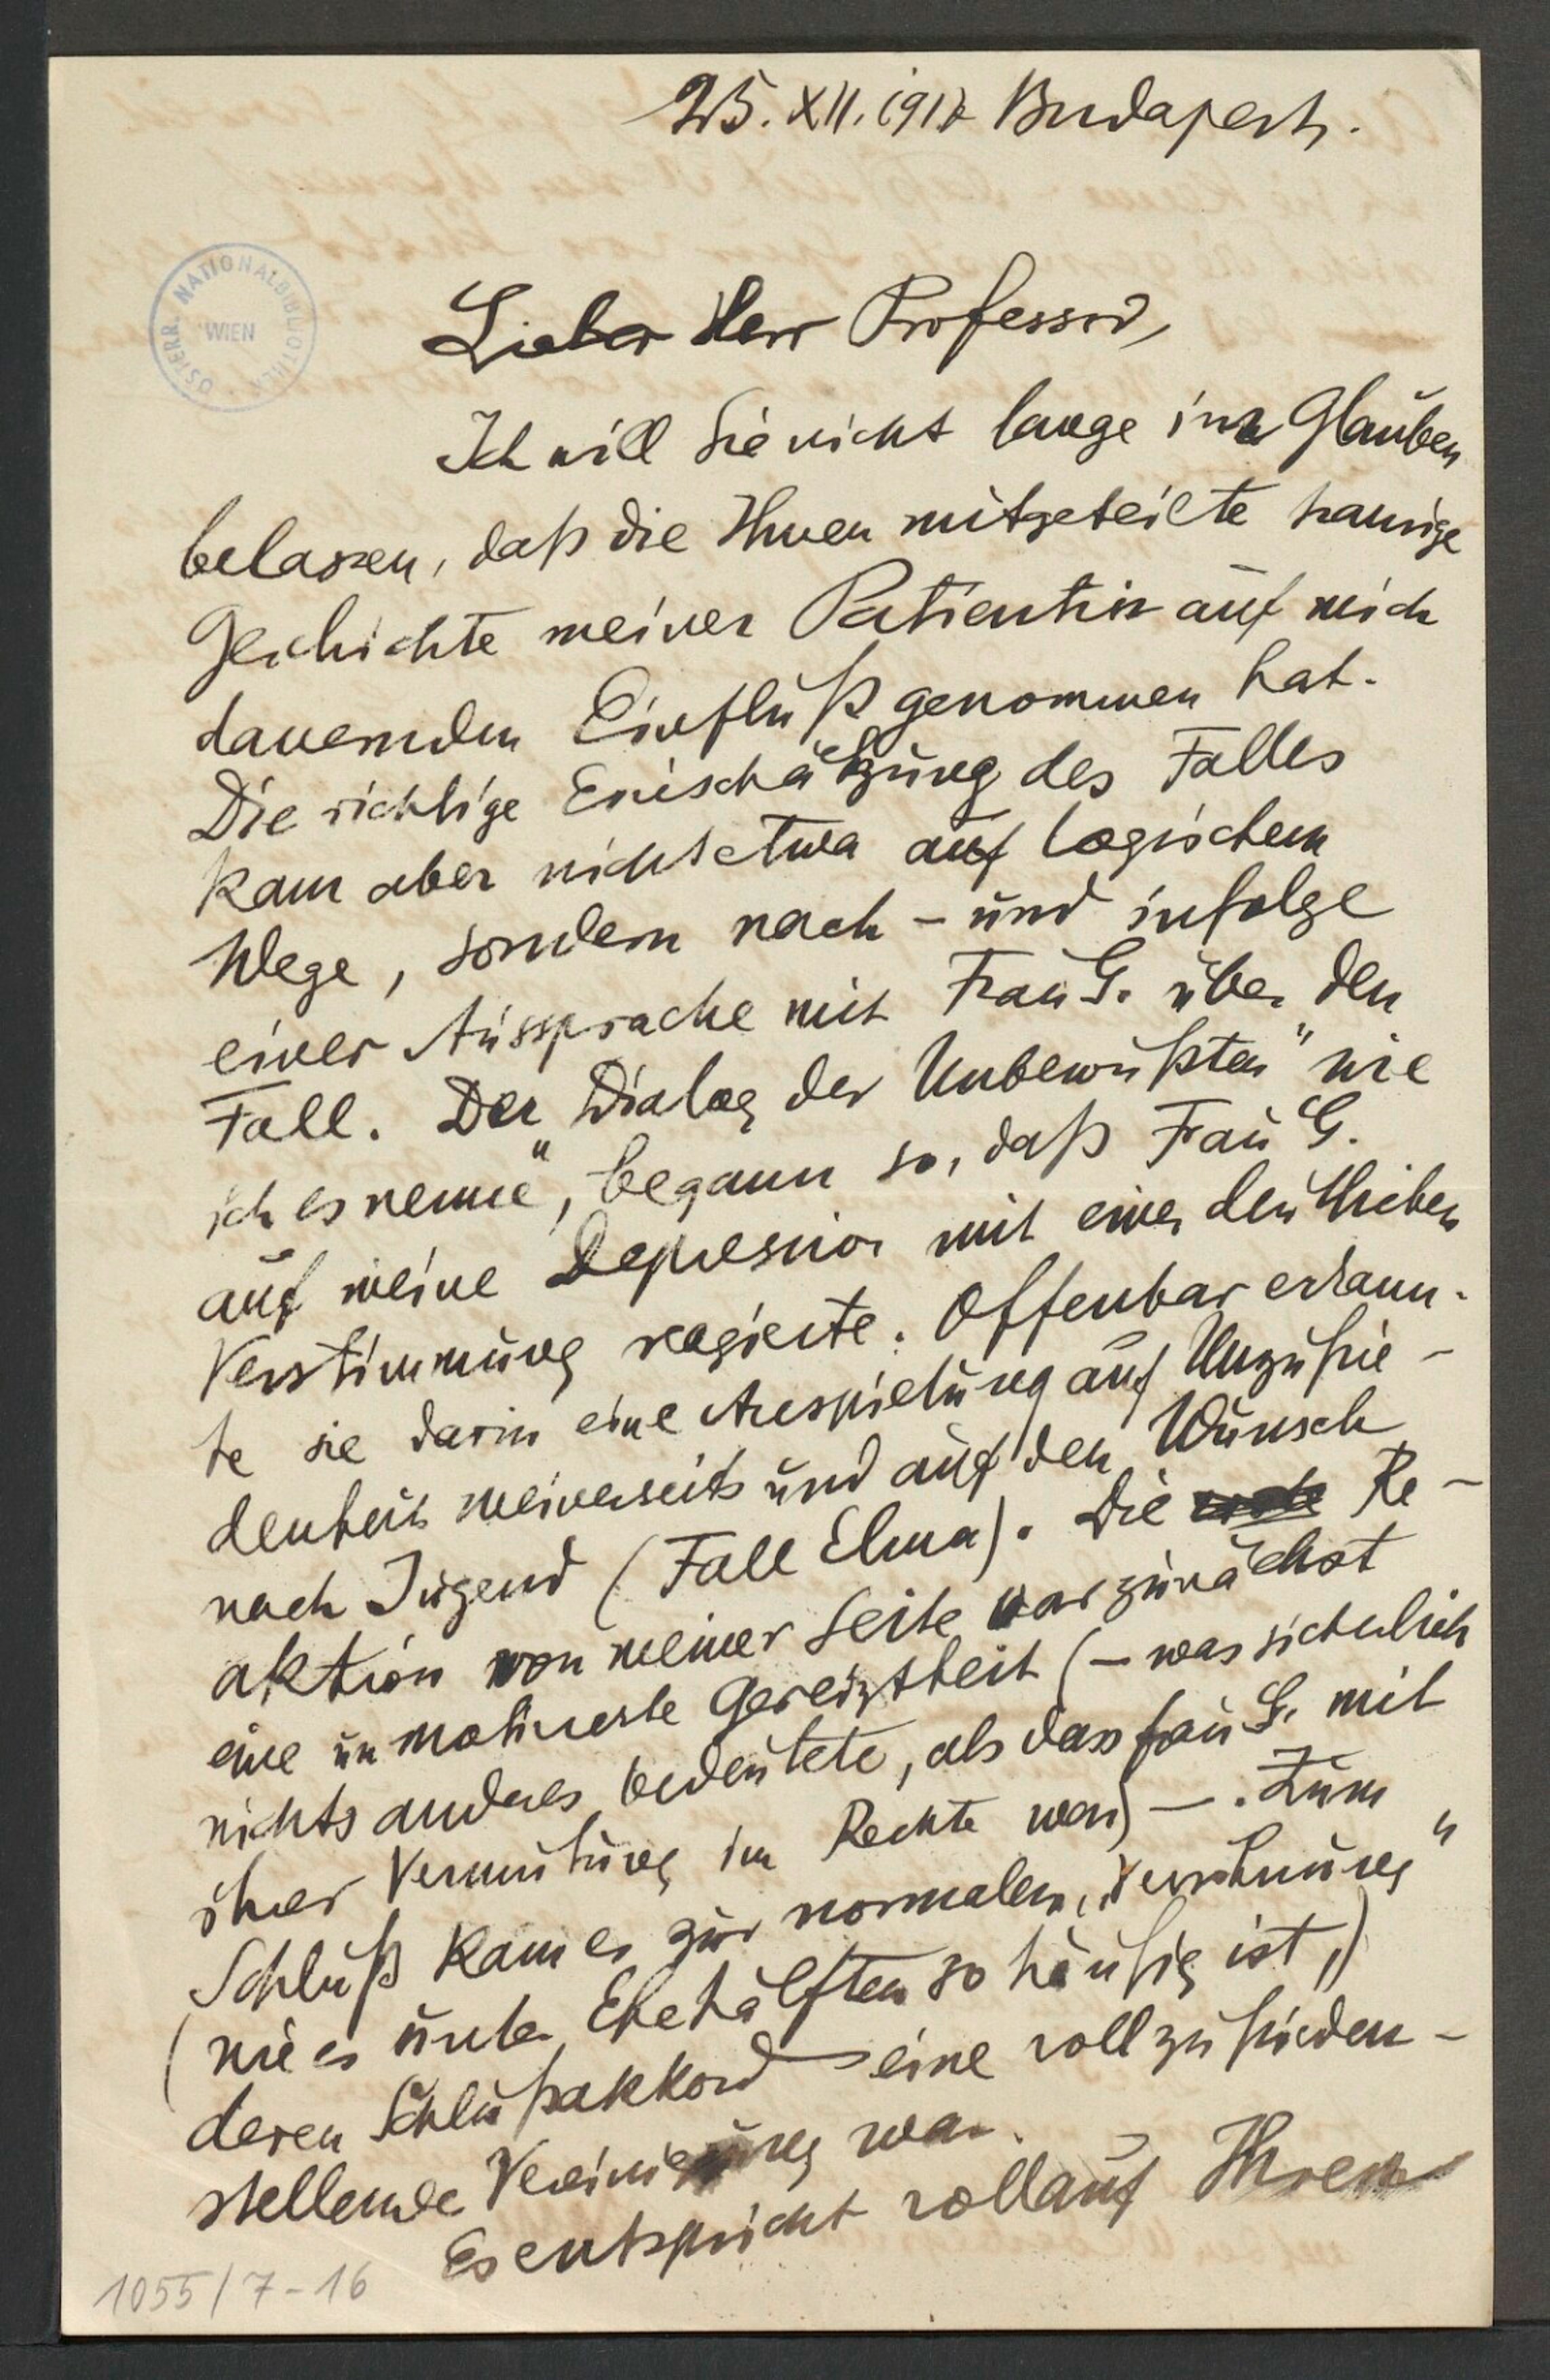 25. XII. 1917 Budapest.
ÖSTERR. NATIONALBIBLIOTHEK
WIEN
Lieber Herr Professor,
Ich will Sie nicht lange im Glauben
belassen, daß die Ihnen mitgeteilte traurige
Geschichte meiner Patientin auf mich
dauernden Einfluß genommen hat.
Die richtige Einschätzung des Falles
kam aber nicht etwa auf logischem
Wege, sondern nach - und infolge
einer Aussprache mit Frau G. über den
Fall. Der „Dialog der Unbewußten" wie
ich es nenne", begann so, daß Frau G.
auf meine Depression mit einer deutlichen
Verstimmung reagierte. Offenbar erkann-
te sie darin eine Anspielung auf Unzufrie-
denheit meinerseits und auf den Wunsch
nach Jugend (Fall Elma). Die Re-
aktion von meiner Seite war zunächst
eine unmotivierte Gereiztheit (– was sicherlich
nichts anderes bedeutete, als dass Frau G. mit
ihrer Vermutung im Rechte war) –. Zum
Schluß kam es zur normalen „Versöhnung"
(wie es unter Ehehälften so häufig ist,)
deren Schlußakkord eine vollzufrieden-
stellende Vereinigung war.
Es entspricht vollauf Ihren
1055/7-16